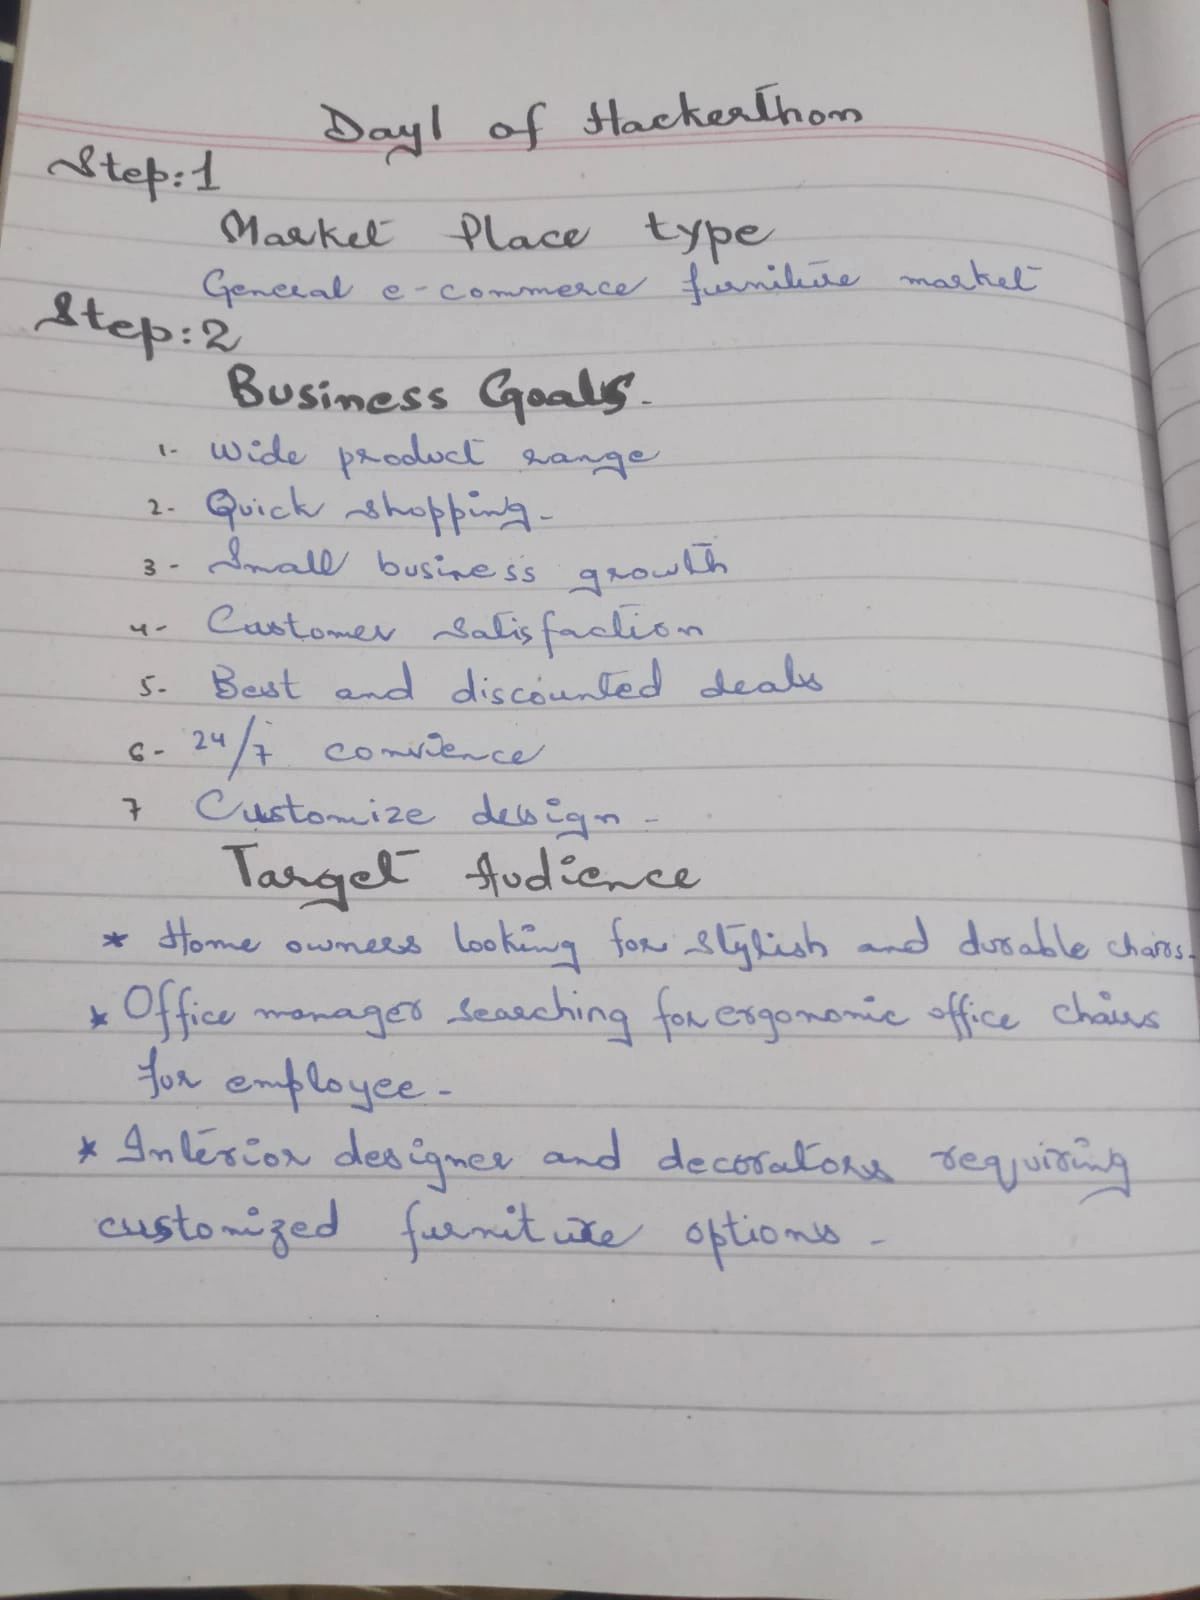 Day1 of Hackerthon
Step:1
Market Place type
General e-commerce furniture market
Step:2
Business Goals.
1- Wide product range
2- Quick shopping-
3- Small business growth
4- Customer satisfaction
5- Best and discounted deals
6- 24/7 convience
7 Customize design-
Target Audience
* Home owners looking for stylish and durable chairs-
* Office manager searching for ergonomic office chairs
for employee-
* Interior designer and decorators requiring
customized furniture options-